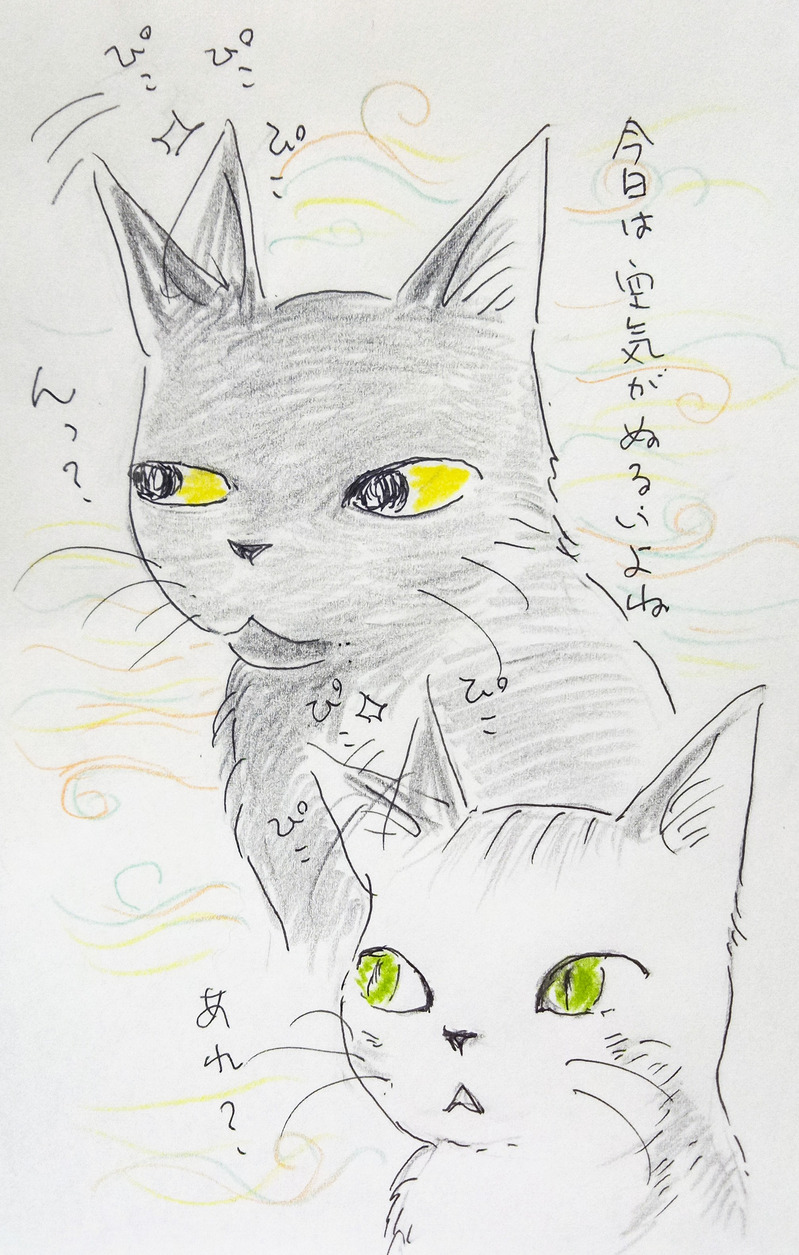 今日は空気がぬるいよね
ぴこ
ぴこ
ぴこ
んっ?
ぴこ
ぴこ
ぴこ
あれ?